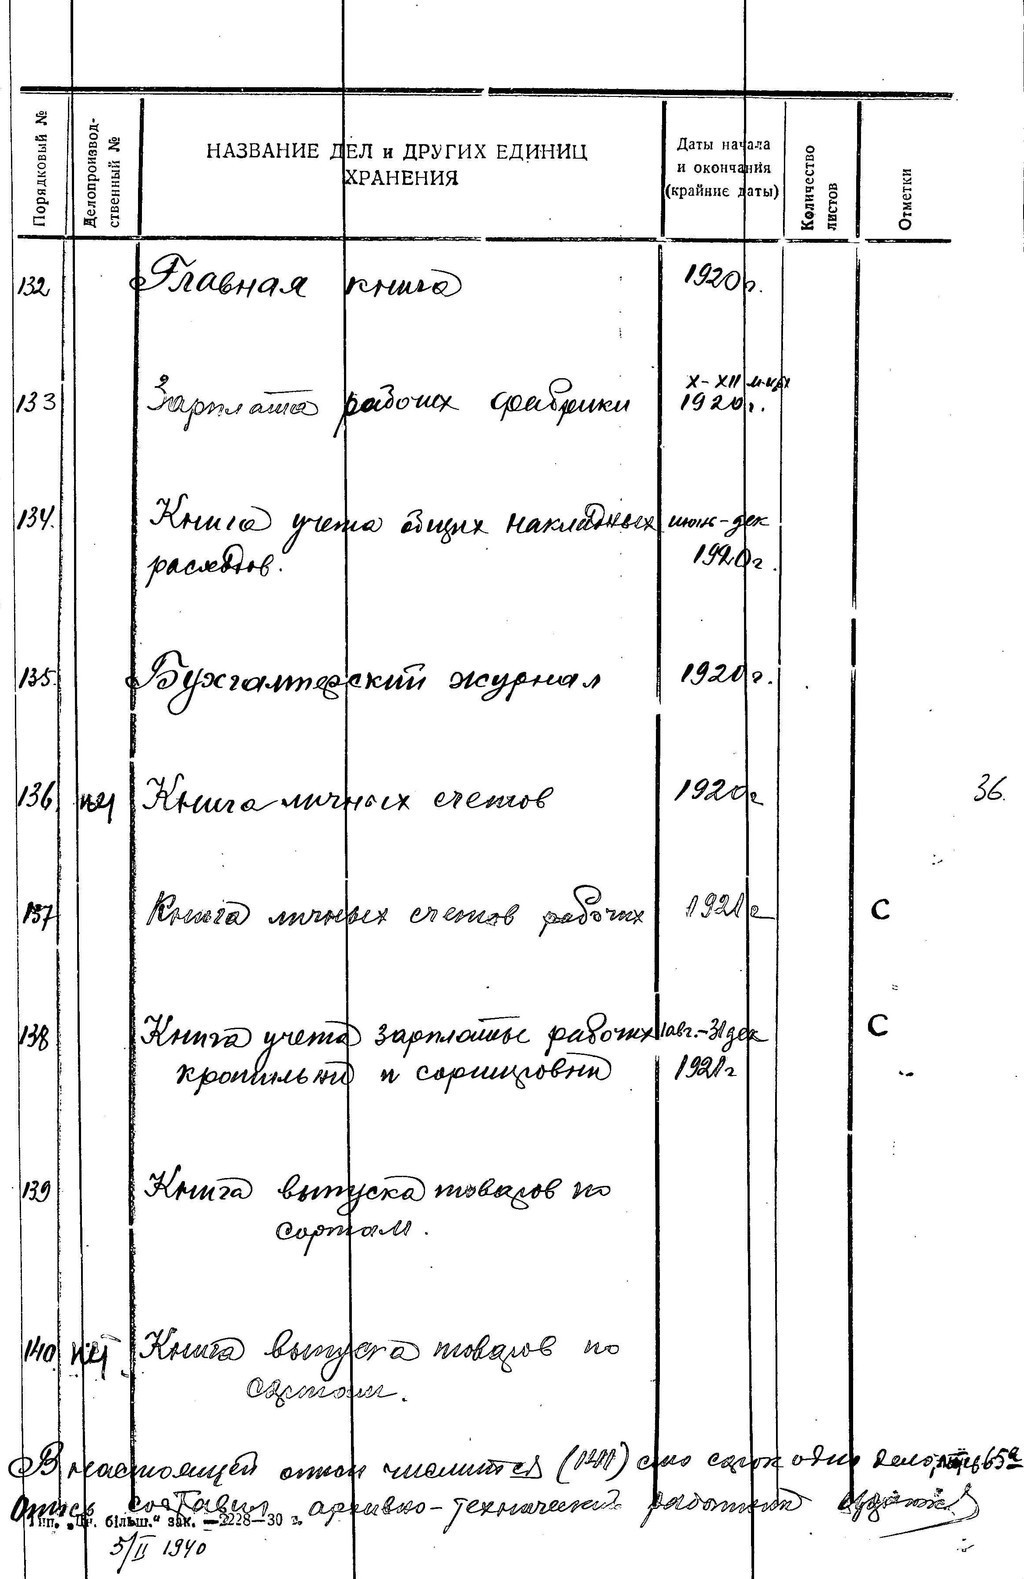 Порядковый №
Делопроизвод-
ственный №
НАЗВАНИЕ ДЕЛ и ДРУГИХ ЕДИНИЦ
ХРАНЕНИЯ
Даты начала
и окончания
(крайние даты)
Количество
листов
Отметки
132 Главная книга 1920 г.
X–XII м-цы
133 Зарплата рабочих фабрики 1920 г.
134. Книга учета общих накладных июнь-дек
расходов. 1920 г.
135. Бухгалтерский журнал 1920 г.
136 нет Книга личных счетов 1920 г 36.
137 Книга личных счетов рабочих 1921 г С
138 Книга учета зарплаты рабочих 1 авг.-31 дек С
1921 г
139 Книга выпуска товаров по
сортам.
140 нет Книга выпуска товаров по
сортам.
В настоящей описи числится (141) сто сорок одно дело, 65а
Опись составил архивно-технический работник
Тип. „Пр. більш." зак. —2228—30 г.
5/II 1940